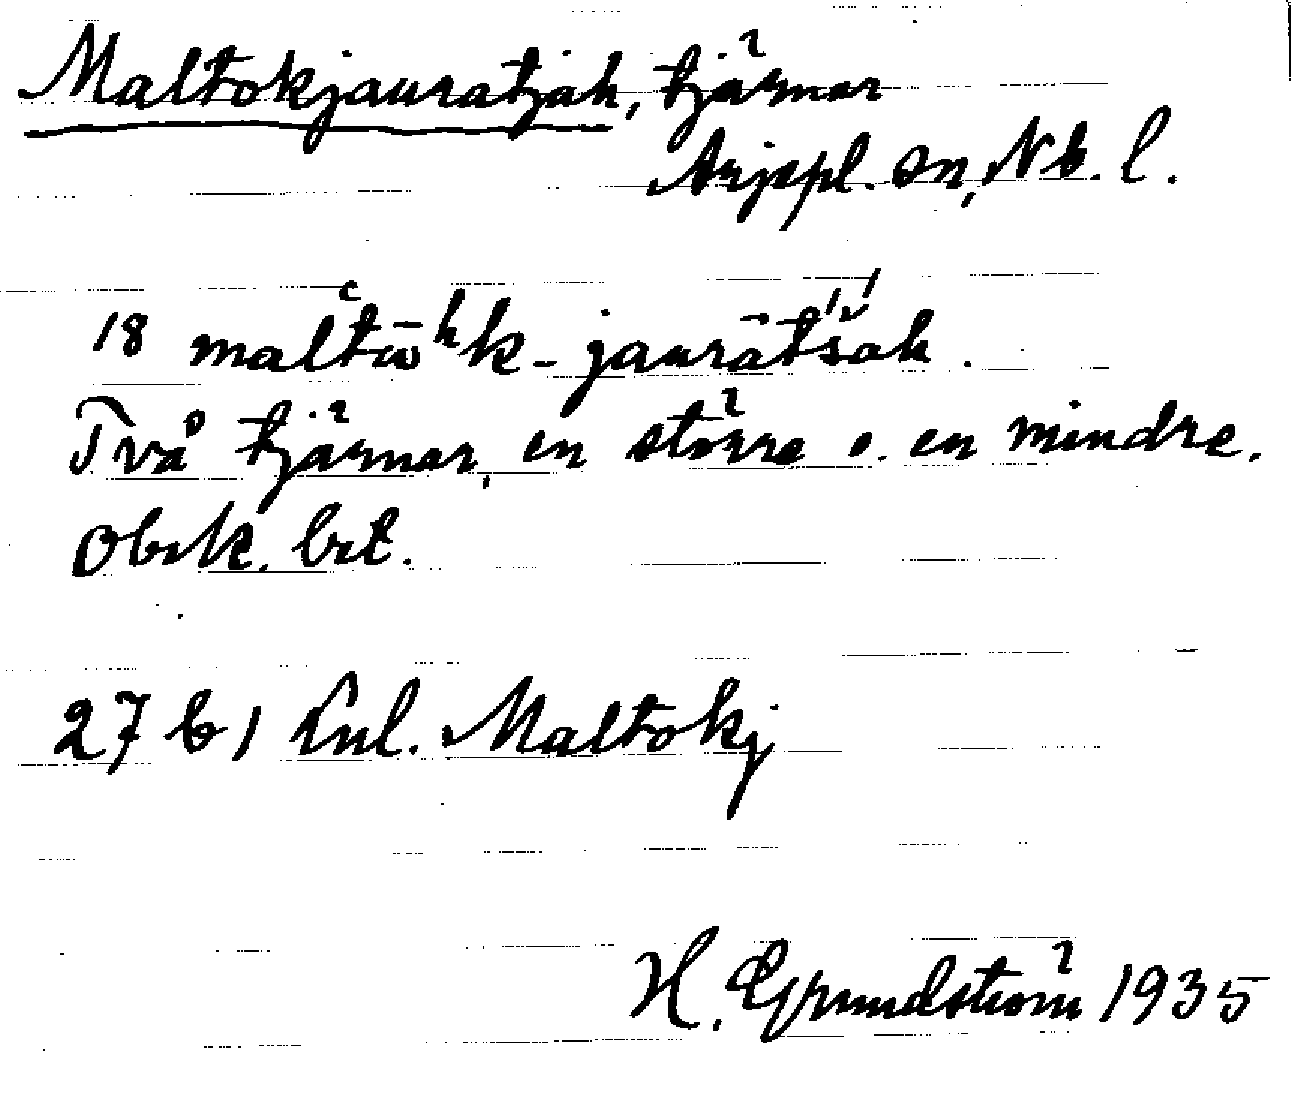 Maltokjauratjah, tjärnar
Arjepl. sn, Nb. l.
18 maltω̄ʰk-jaurātśǎh.
Två tjärnar, en större o. en mindre.
Obek. bet.
27 b) Enl. Maltokj
H. Grundström 1935